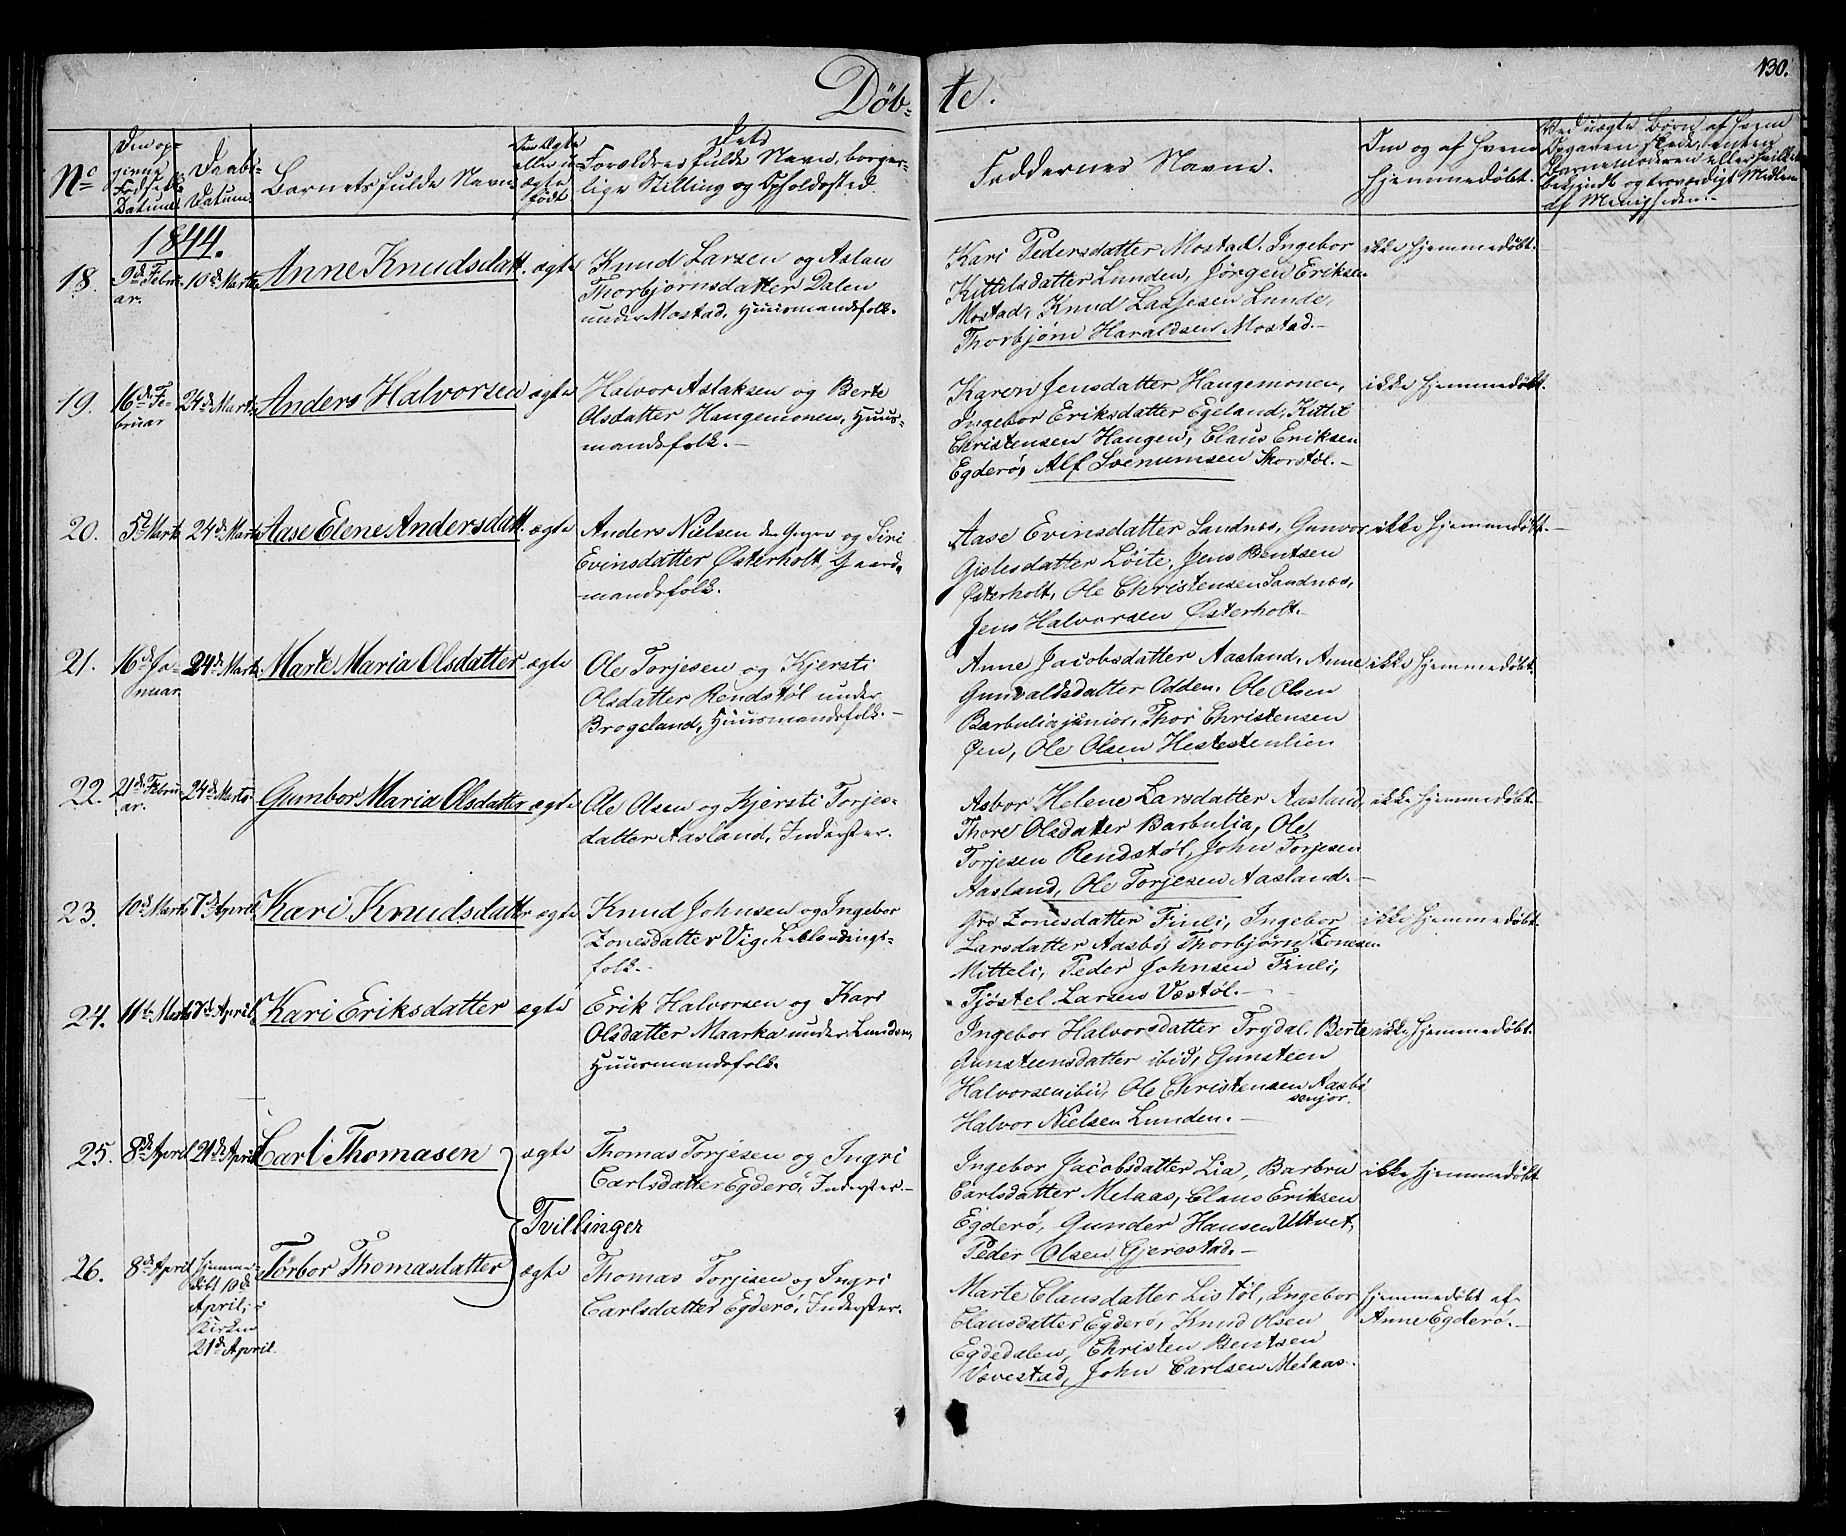 Døb-
te.
130.
No
Den op-
givne
Fødsels
Datum.
Daabs-
Datum.
Barnets fulde Navn
Om Ægte
eller u-
ægte
født
Dets
Forældres fulde Navn, borger-
lige Stilling og Opholdssted.
Faddernes Navne.
Om og af hvem
hjemmedøbt.
Ved uægte Børn af hvem
Opgaven skede, enten
Barnemoderen eller hvilket
bekjendt og troværdigt Medlem
af Menigheden.-
1844.
18.
9de Febru-
ar.
10de Marts
Anne Knudsdatt.
ægte
Knud Larsen og Aslau
Thorbjørnsdatter Dalen
under Mostad, Huusmandsfolk.
Kari Pedersdatter Mostad, Ingebor
Kittilsdatter Lunden, Jørgen Eriksen
Mostad, Knud Lassesen Lunde,
Thorbjørn Haraldsen Mostad.-
ikke hjemmedøbt.
19.
16de Fe-
bruar
24de Marts
Anders Halvorsen
ægte
Halvor Aslaksen og Berte
Olsdatter Haugemonen, Huus-
mandsfolk.-
Karen Jensdatter Haugemonen,
Ingebor Eriksdatter Egeland, Kittil
Christensen Haugen, Claus Eriksen
Egderø, Alf Svenumsen Skorstøl.-
ikke hjemmedøbt.
20.
5te Marts
24de Marts
Aase Elene Andersdatt.
ægte
Anders Nielsen den Yngre og Siri
Evinsdatter Østerholt, Gaard-
mandsfolk.
Aase Evinsdatter Sandnes, Gunvor
Gjelesdatter Løite, Jens Bentsen
Østerholt, Ole Christensen Sandnes,
Jens Halvorsen Østerholt.-
ikke hjemmedøbt.-
21.
16de Ja-
nuar
24de Marts
Marte Maria Olsdatter
ægte
Ole Torjesen og Kjersti
Olsdatter Rendstøl under
Brogeland, Huusmandsfolk.-
Anne Jacobsdatter Aasland, Anne
Gunvaldsdatter Odden, Ole Olsen
Barbulia junior, Thor Christensen
Øen, Ole Olsen Hestestenlien
ikke hjemmedøbt.
22.
21de Febru-
ar.
24de Marts.
Gunbor Maria Olsdatter
ægte
Ole Olsen og Kjersti Torjes-
datter Aasland, Inderster.
Asbor Helene Larsdatter Aasland,
Thore Olsdatter Barbulia, Ole
Torjesen Rendstøl, John Torjesen
Aasland, Ole Torjesen Aasland.-
ikke hjemmedøbt.-
23.
10de Marts
7de April
Kari Knudsdatter
ægte
Knud Johnsen og Ingebor
Zonesdatter Vig, Leilændings-
folk.-
Gro Zonesdatter Finli, Ingebor
Larsdatter Aasbø, Thorbjørn Zonesen
Mitteli, Peder Johnsen Finli,
Tjøstel Larsen Vestøl.-
ikke hjemmedøbt.
24.
11te Marts
7de April
Kari Eriksdatter
ægte
Erik Halvorsen og Kari
Olsdatter Maarka under Lunden,
Huusmandsfolk.
Ingebor Halvorsdatter Trydal, Berte
Gunsteensdatter ibid, Gunsteen
Halvorsen ibid, Ole Christensen Aasbø
senjor.
Halvor Nielsen Lunden.-
ikke hjemmedøbt.
25.
8de April
21de April
Carl Thomasen
ægte
Thomas Torjesen og Ingri
Carlsdatter Egderø, Inderster.-
Tvillinger
Ingebor Jacobsdatter Lia, Barbru
Carlsdatter Melaas, Claus Eriksen
Egderø, Gunder Hansen Ulltvet,
Peder Olsen Gjerestad.-
ikke hjemmedøbt
26.
8de April
hjemme-
døbt 10de
April, i
Kirken
21de April.
Torbor Thomasdatter
ægte
Thomas Torjesen og Ingri
Carlsdatter Egderø, Inderster.
Marte Clausdatter Listøl, Ingebor
Clausdatter Egderø, Knud Olsen
Egdedalen, Christen Bentsen
Vævestad, John Carlsen Melaas.
hjemmedøbt af
Anne Egderø.-